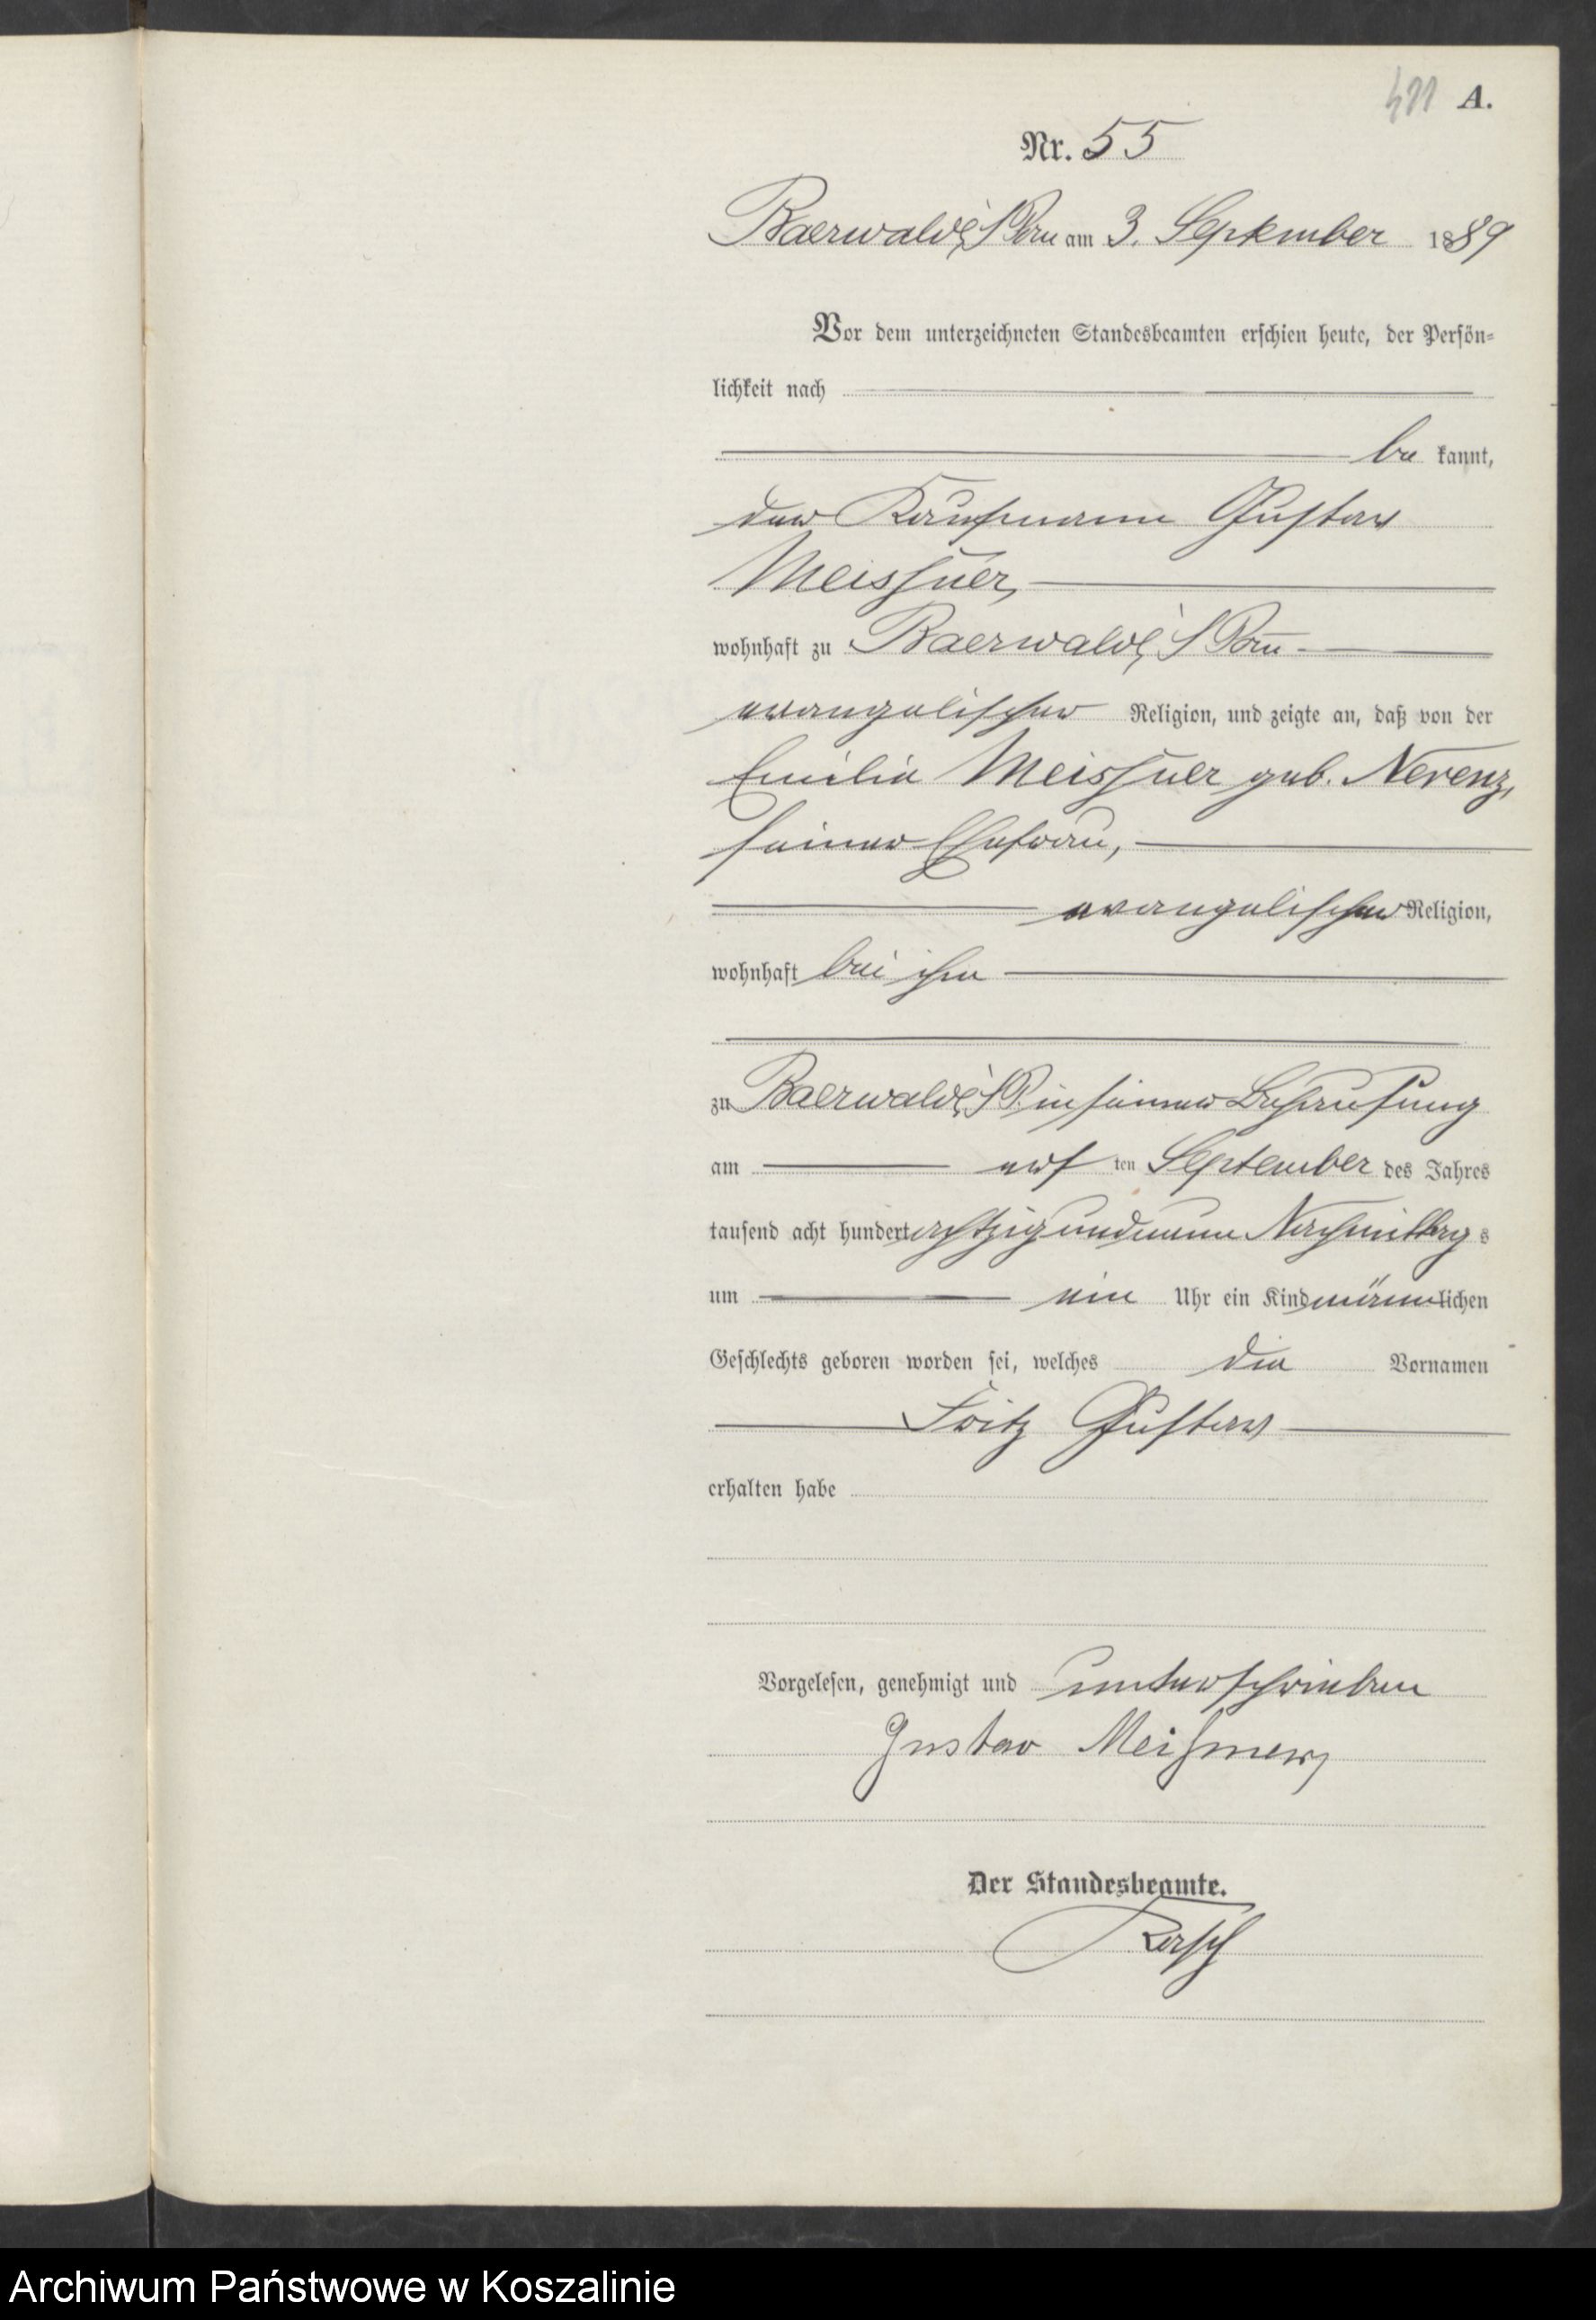 411 A.
Nr. 55
Baerwalde, i/Pom am 3. September 1889
Vor dem unterzeichneten Standesbeamten erschien heute, der Persön-
lichkeit nach
be kannt,
der Kaufmann Gustav
Meissner,
wohnhaft zu Baerwalde, i/Pom
evangelischer Religion, und zeigte an, daß von der
Emilie Meissner geb. Nerenz,
seiner Ehefrau,
evangelischer Religion,
wohnhaft bei ihm
zu Baerwalde, i/P. in seiner Behausung
am ersten September des Jahres
tausend acht hundert achtzig und neun Nachmittags
um ein Uhr ein Kind männlichen
Geschlechts geboren worden sei, welches die Vornamen
Fritz Gustav
erhalten habe
Vorgelesen, genehmigt und unterschrieben
Gustav Meißner,
Der Standesbeamte.
Archiwum Państwowe w Koszalinie